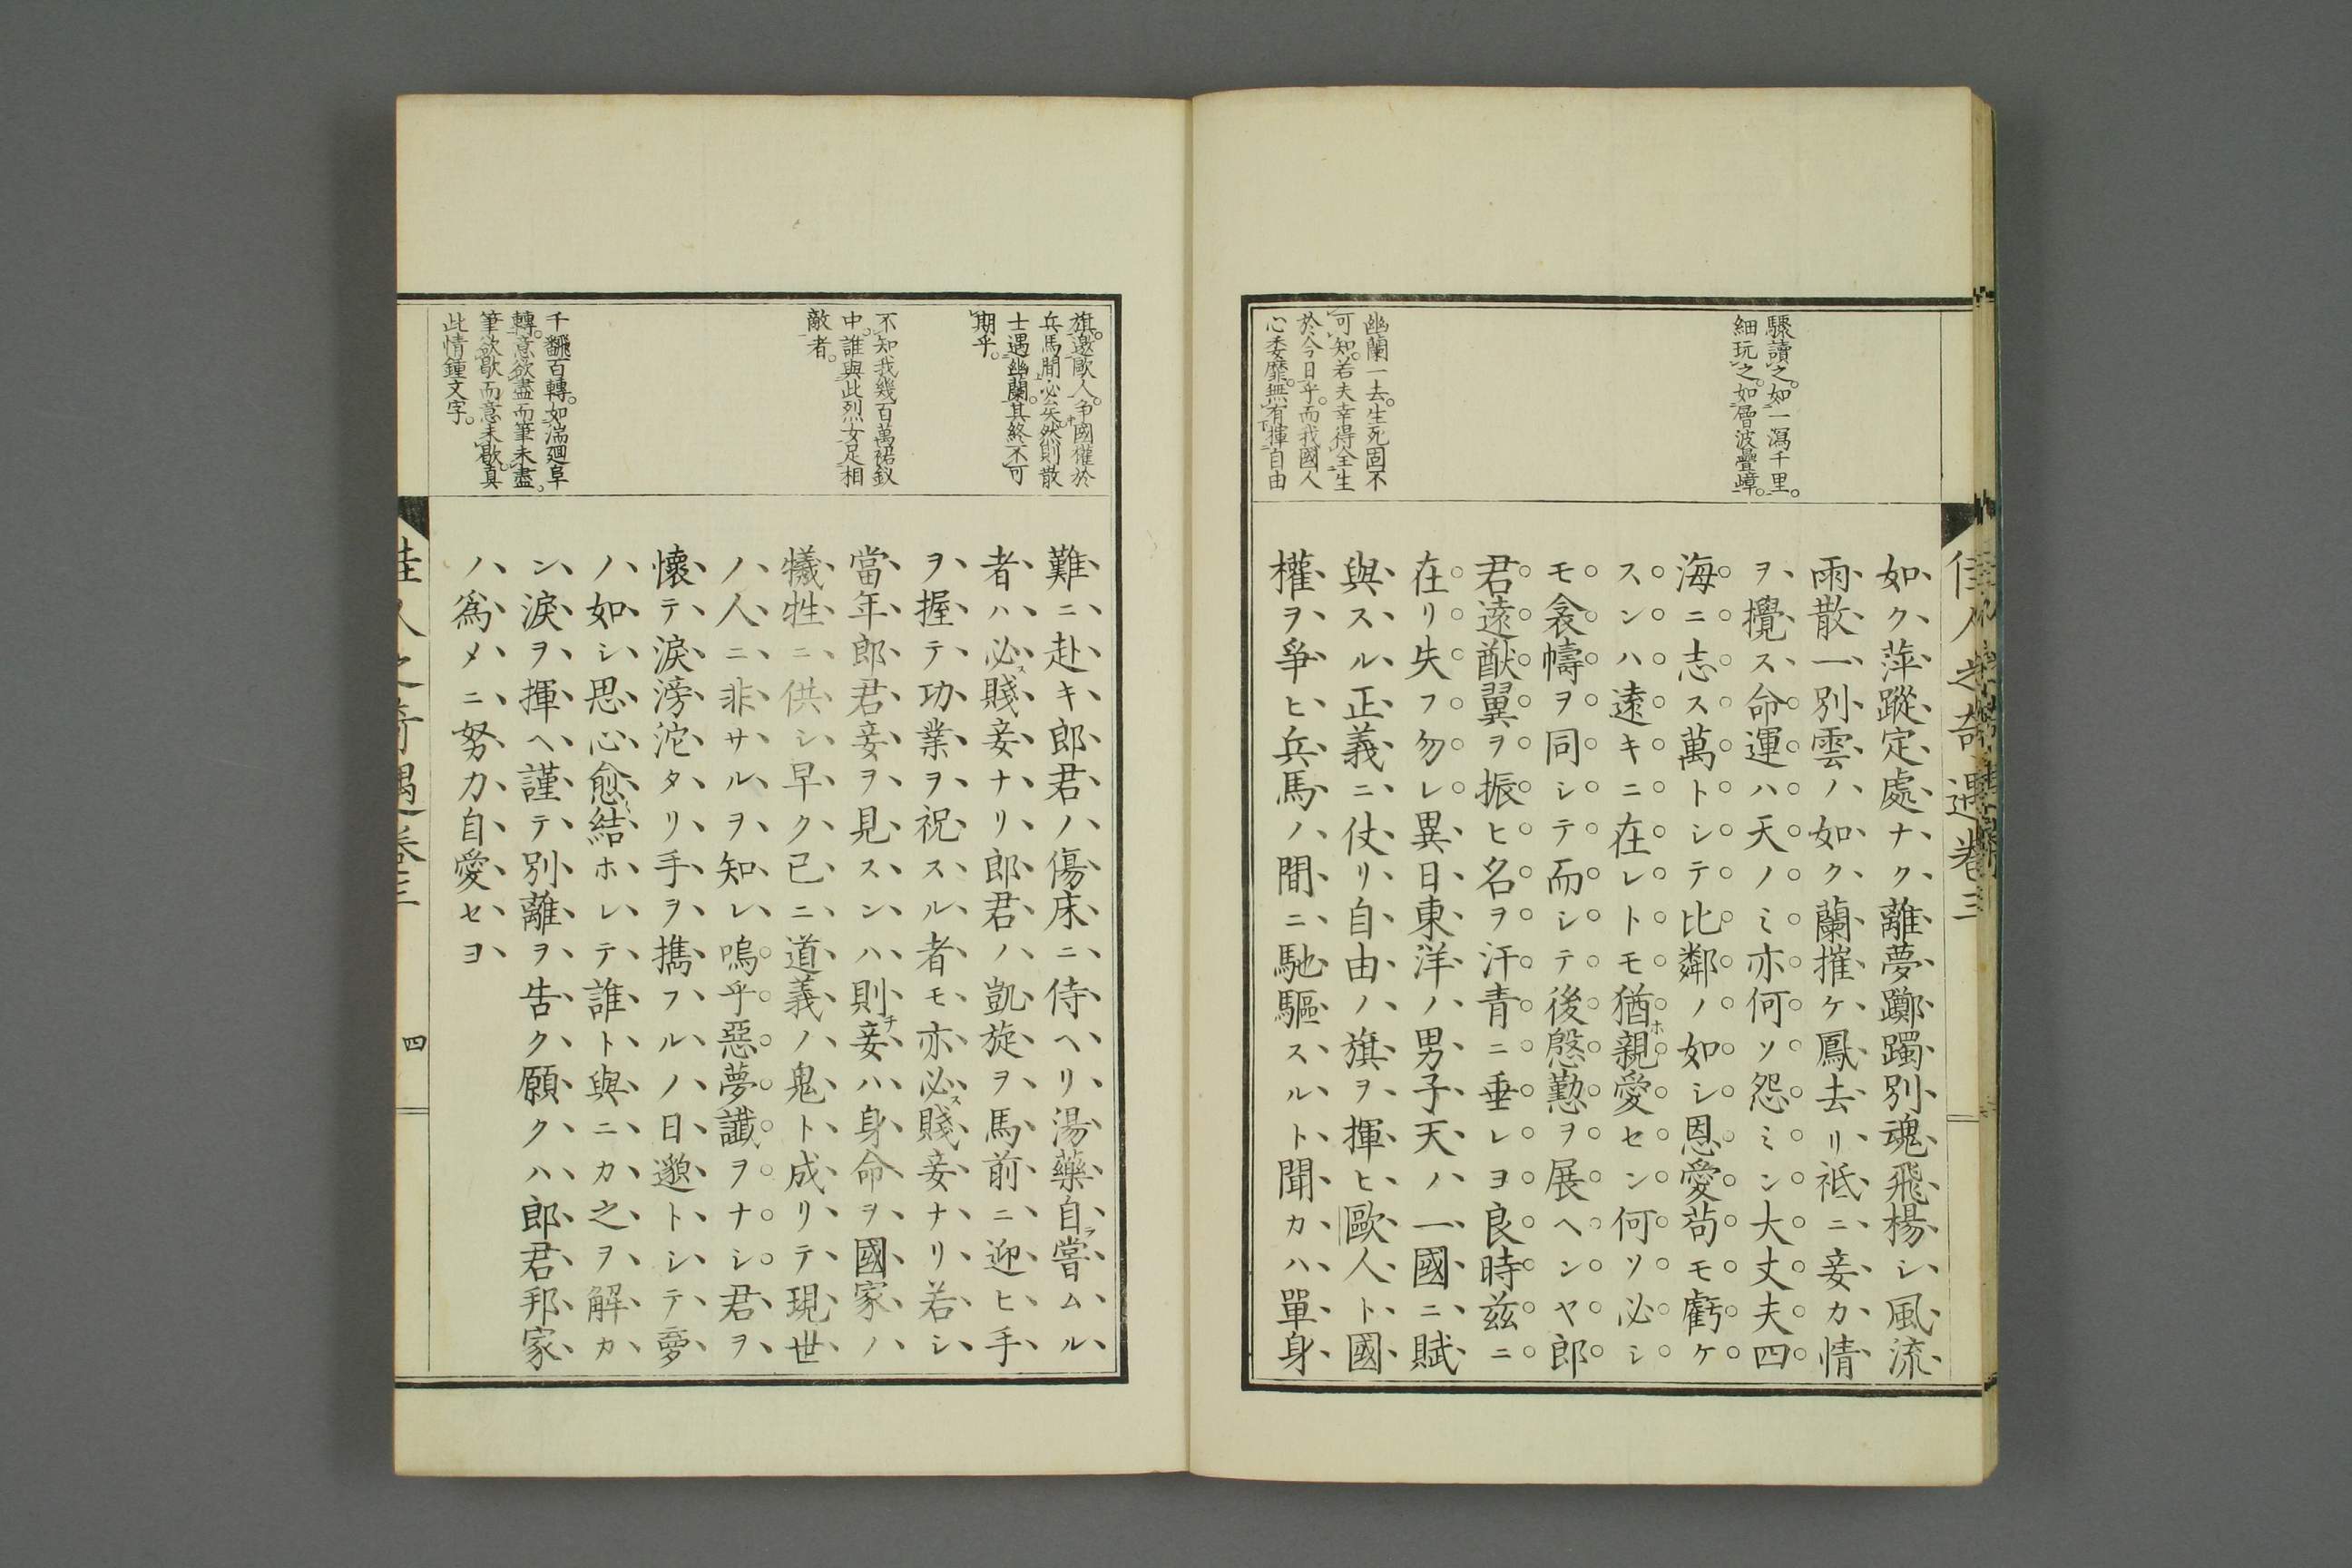 佳人之奇遇卷三
驟讀之。如一瀉千里。
細玩之。如層波疊嶂。
幽蘭一去。生死固不
可知。若夫幸得全生
於今日乎。而我國人
心委靡。無有揮自由
如ク萍蹤定處ナク離夢躑躅別魂飛楊シ風流
雨散一別雲ノ如ク蘭摧ケ鳳去リ祗ニ妾カ情
ヲ攪ス命運ハ天ノミ亦何ソ怨ミン大丈夫四
海ニ志ス萬トシテ比鄰ノ如シ恩愛苟モ虧ケ
スンハ遠キニ在レトモ猶ホ親愛セン何ソ必シ
モ衾幬ヲ同シテ而シテ後慇懃ヲ展ヘンヤ郎
君遠猷翼ヲ振ヒ名ヲ汗青ニ垂レヨ良時玆ニ
在リ失フ勿レ異日東洋ノ男子天ノ一國ニ賦
與スル正義ニ仗リ自由ノ旗ヲ揮ヒ歐人ト國
權ヲ爭ヒ兵馬ノ間ニ馳驅スルト聞カハ單身
旗。邀歐人。争國權於
兵馬間必矣。然則散
士遇幽蘭。其終不可
期乎。
不知我幾百萬裙釵
中。誰與此烈女足相
敵者。
千飜百轉。如湍廻阜
轉。意欲盡而筆未盡。
筆欲歇而意未歇。真
此情鍾文字。
難ニ赴キ郎君ノ傷床ニ侍ヘリ湯藥自ラ嘗ムル
者ハ必ス賤妾ナリ郎君ノ凱旋ヲ馬前ニ迎ヒ手
ヲ握テ功業ヲ祝スル者モ亦必ス賤妾ナリ若シ
當年郎君妾ヲ見スンハ則チ妾ハ身命ヲ國家ノ
犧牲ニ供シ早ク已ニ道義ノ鬼ト成リテ現世
ノ人ニ非サルヲ知レ嗚乎惡夢讖ヲナシ君ヲ
懷テ淚滂沱タリ手ヲ攜フルノ日邈トシテ夢
ノ如シ思心愈結ホレテ誰ト與ニカ之ヲ解カ
ン淚ヲ揮ヘ謹テ別離ヲ告ク願クハ郎君邦家
ノ爲メニ努力自愛セヨ
佳人之奇遇卷三
四